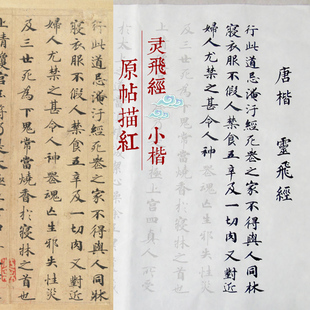 唐楷 靈飛經
行此道忌淹汙經死喪之家不得與人同牀
寢衣服不假人禁食五辛及一切肉又對近
婦人尤禁之甚令人神喪魂亡生邪失性災
極上宮四真人所受
灵飛經 小楷
原帖描紅
行此道忌淹汙經死喪之家不得與人同牀
寢衣服不假人禁食五辛及一切肉又對近
婦人尤禁之甚令人神喪魂亡生邪失性災
及三世死為下鬼常當燒香於寢牀之首也
上清瓊宮